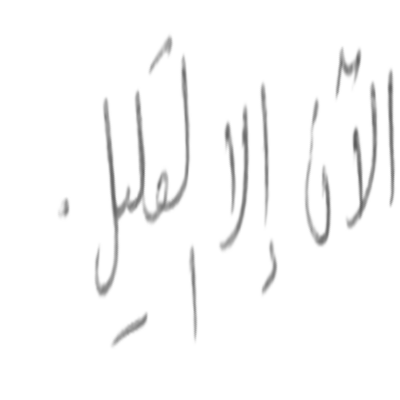 الآن إلا القليل .